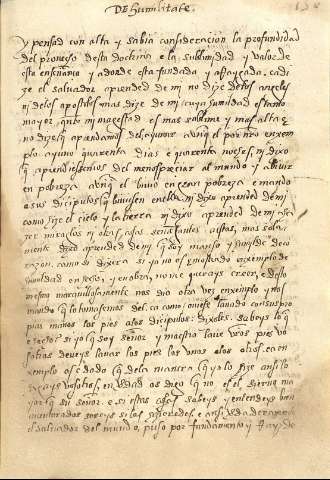 De humilitate.
y pensad con alta y sabia consideracion la profundidad
del proçesso desta doctrina e la sublimidad y valor de
esta enseñança y adonde esta fundada y Raygada. ca di
ze el salvador aprended de mi no dize delos angeles
ni delos apostoles mas dize de mi cuya humildad es tanto
mayor, quanto mi magestad es mas sublime y mas alta e
no dize que aprendamos del ayunar avnque el por nos enxem
plo ayuno quarenta dias e quarenta noches, ni dixo
que aprendiessemos del menospreciar al mundo y a bivir
en pobreza avnque el bivio en gran pobreza e mando
a sus discipulos que biviessen en ella, ni dixo aprended de mi
como hize el cielo y la tierra ni dixo aprended de mi a ha
zer miraclos ni otras cosas semejantes a estas, mas sola
mente dixo aprended de mi que soy manso y humilde de co
razon. como si dixera si yo no os e mostrado enxemplo de
humildad en dicho, y en obra, no me querays creer, e desto
mesmo maravillosamente nos dio otra vez enxemplo y nos
mando que lo tomassemos del. ca como oviesse lavado con sus pro
pias manos los pies a sus discipulos: dixoles. sabeys lo que
e hecho? si yo que soy señor y maestro lave vros pies vo
sotros deveys lavar los pies los unos a los otros. ca en
xemplo os e dado que dela manera que yo lo hize ansi lo
hagays vosotros, en verdad os digo que no es el siervo ma
yor que su señor. e si estas cosas sabeys y entendeys bien
aventurados sereys si las hizieredes. e ansi
el salvador del mundo, puso por fundamento y